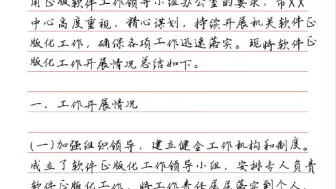 用正版软件工作领导小组办公室的要求，市XX
中心高度重视，精心谋划，持续开展机关软件正
版化工作，确保各项工作迅速落实。现将软件正
版化工作开展情况总结如下。
一、工作开展情况
(一)加强组织领导，建立健全工作机构和制度。
成立了软件正版化工作领导小组，安排专人负责
软件正版化工作，将工作责任层层落实到个人，